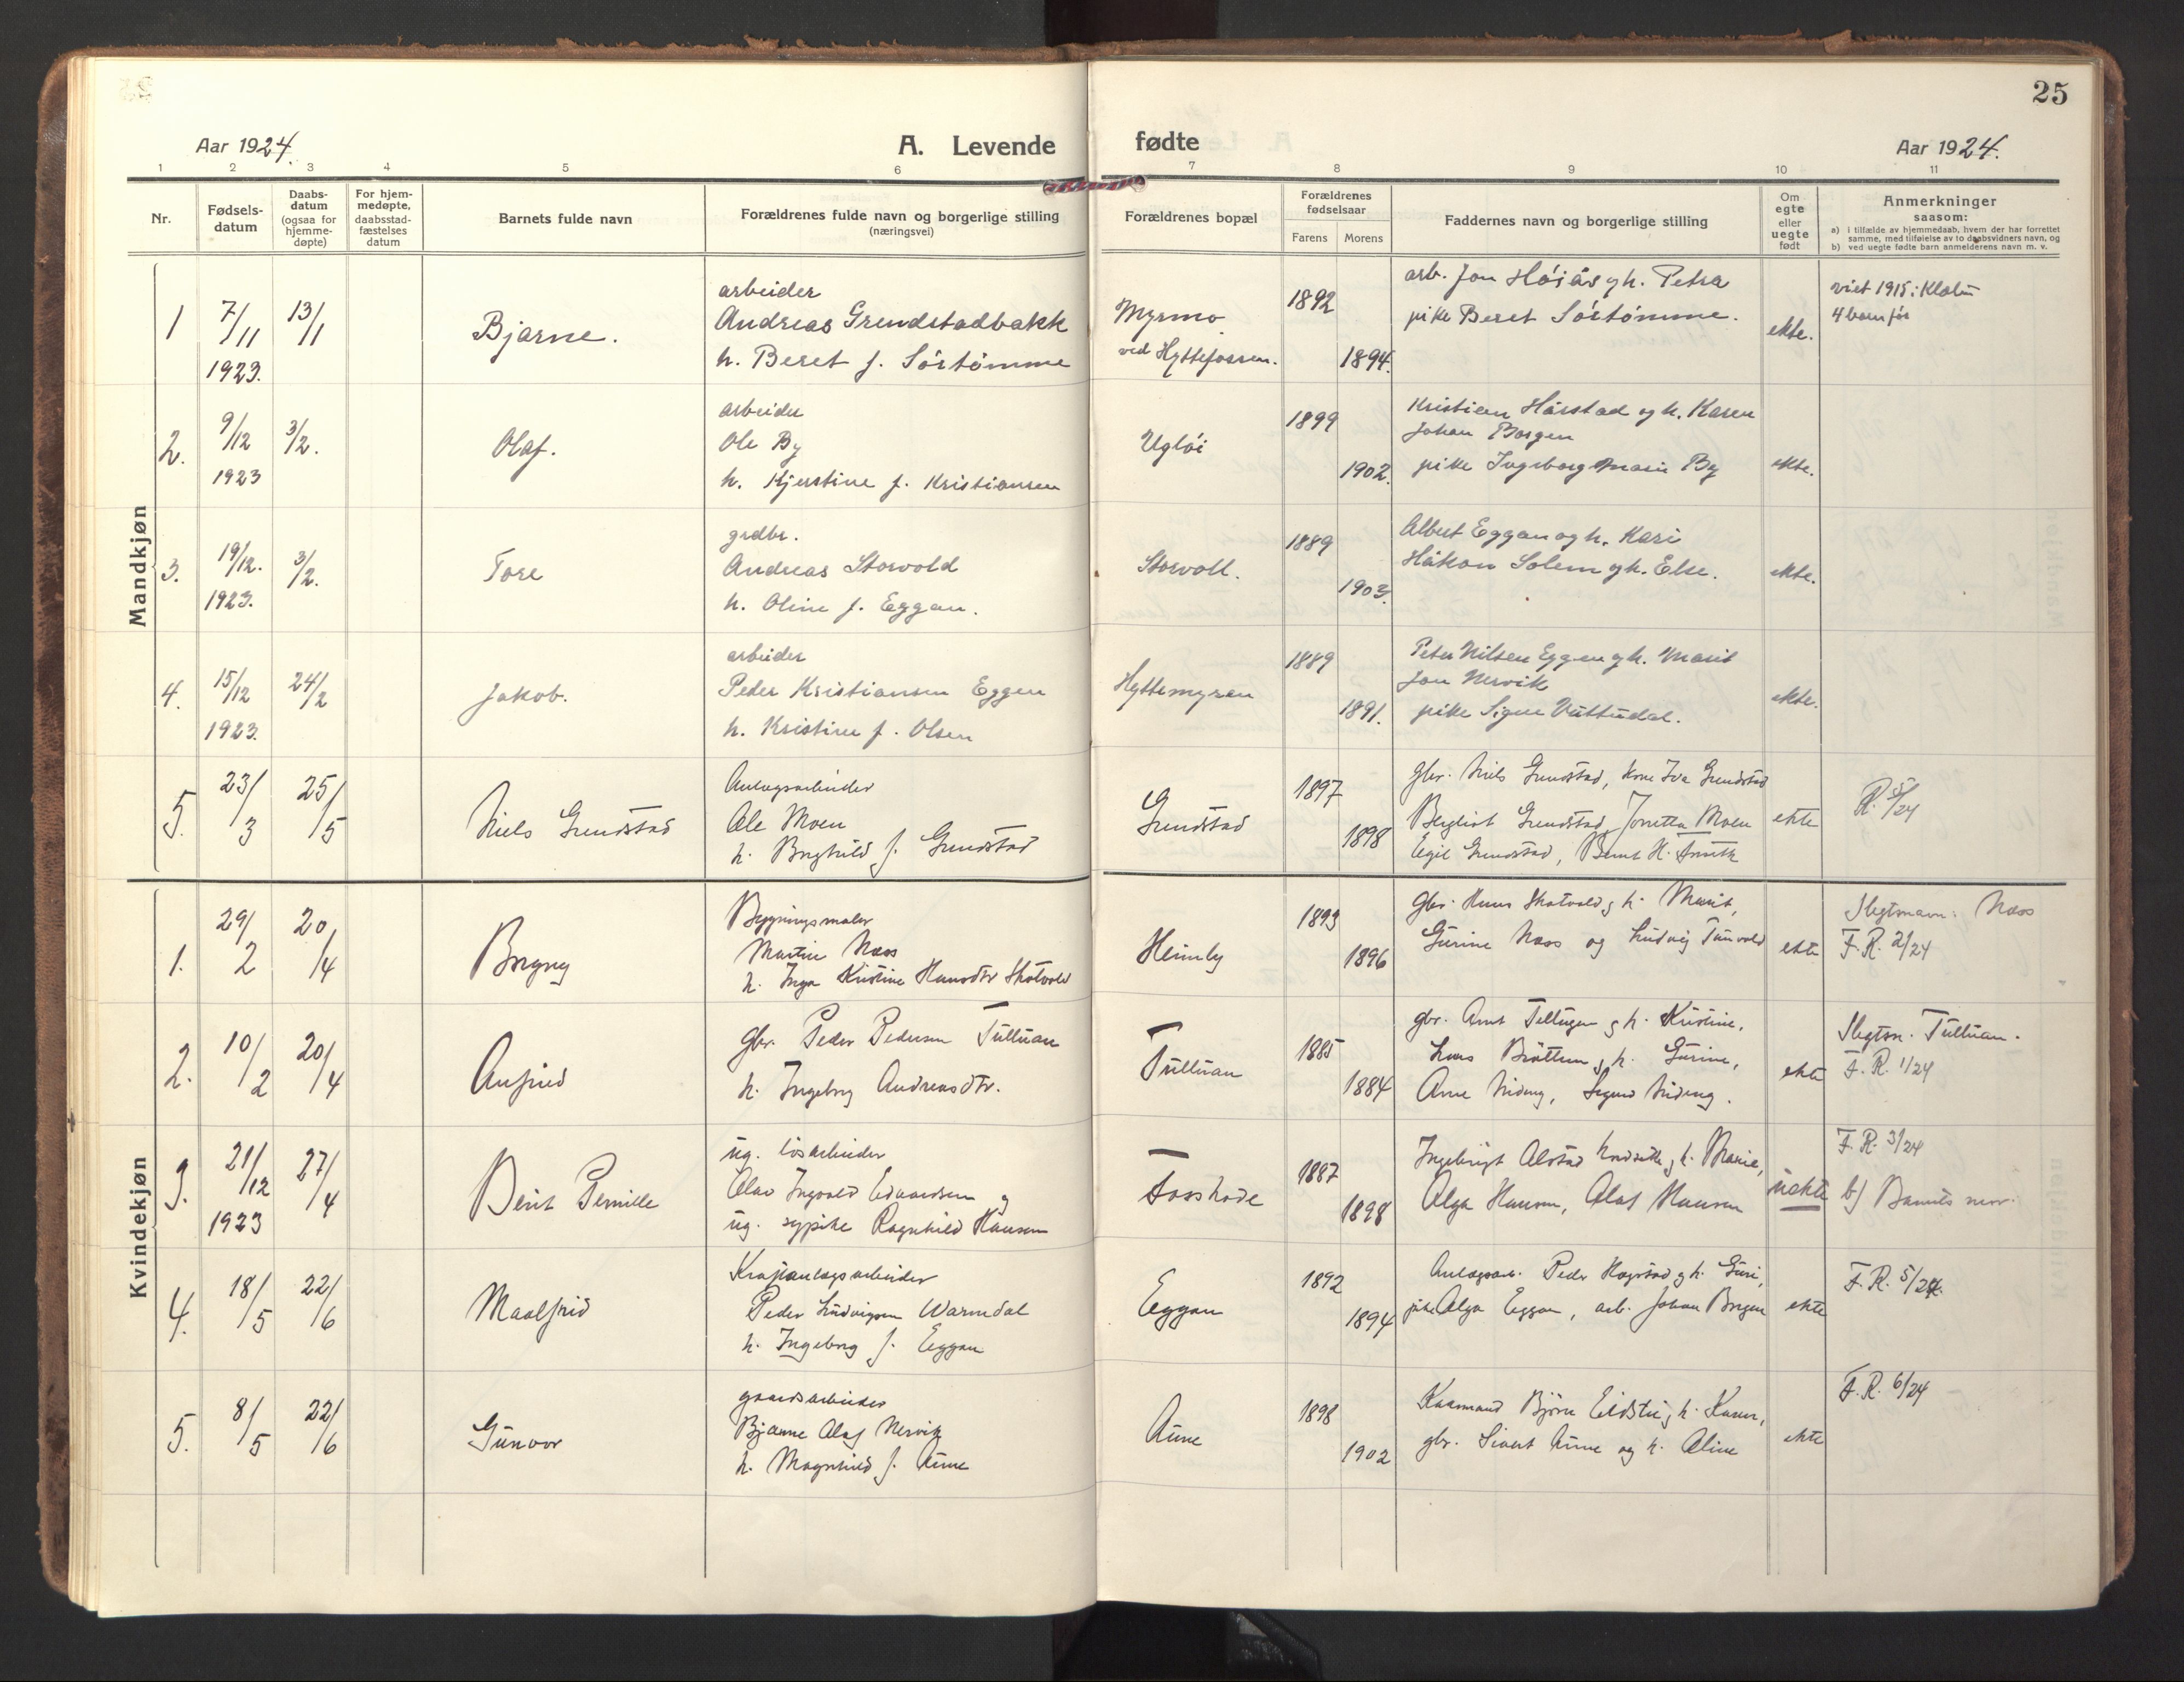 25
Aar 1924.
A. Levende fødte
Aar 1924.
1 2 3 4 5 6 7 8 9 10 11
Nr.
Fødsels-
datum
Daabs-
datum
(ogsaa for
hjemme-
døpte)
For hjem-
medøpte,
daabsstad-
fæstelses
datum
Barnets fulde navn
Forældrenes fulde navn og borgerlige stilling
(næringsvei)
Forældrenes bopæl
Forældrenes
fødselsaar
Farens Morens
Faddernes navn og borgerlige stilling
Om
egte
eller
uegte
født
Anmerkninger
saasom:
a) i tilfælde av hjemmedaab, hvem der har forrettet
samme, med tilføielse av to daabsvidners navn, og
b) ved uegte fødte barn anmelderens navn m. v.
Mandkjøn
1 7/11 1923. 13/1 Bjarne.
arbeider
Andreas Grendstadbakk
h. Beret f. Sørtømme
Myrmo
ved Hyttefossen.
1892 1894.
arb. Jon Høiås og h. Petra
pike Beret Sørtømme.
ekte.
viet 1915 i Klæbu
4 barn før
2. 9/12 1923 3/2. Olaf.
arbeider
Ole By
h. Kjerstine f. Kristiansen
Ugløi
1899 1902.
Kristian Hårstad og h. Karen
Johan Borgen
pike Ingeborg Marie By
ekte.
3. 19/12. 1923. 3/2. Tore
grdbr.
Andreas Storvold
h. Oline f. Eggan.
Storvoll.
1889 1903.
Albert Eggan og h. Kari
Håkon Solem og h. Else.
ekte.
4. 15/12 1923. 24/2 Jakob.
arbeider
Peder Kristiansen Eggen
h. Kristine f. Olsen
Hyttemyren
1889 1891.
Peter Nilsen Eggen og h. Marit
Jon Nervik
pike Signe Vuttudal.
ekte.
5. 23/3 25/5 Niels Grendstad
Anlægsarbeider
Ole Moen
h. Borghild f. Grendstad
Grendstad
1897 1898
gbr. Niels Grendstad, kone Ida Grendstad
Bergliot Grendstad, Jonetta Moen
Egil Grendstad, Bernt H.
ekte
R. 5/24
Kvindekjøn
1. 29/2 20/4 Borgny
Bygningsmaler
Martin Næss
h. Inga Kristine Hansdtr Skotvold
Heimly
1893 1896
gbr. Hans Skotvold og h. Marit,
Gurine Næss og Ludvig Tunvold
ekte
Slegtsnavn: Næss
F. R. 2/24
2. 10/2 20/4 Anfrid
gbr. Peder Pedersen Tulluan
h. Ingeborg Andreasdtr.
Tulluan
1885 1884
gbr. Arnt Tellugen og h. Kristine,
Lars Brøttem og h. Gurine,
Arne Nideng, Sigurd Nideng.
ekte
Slegtsn. Tulluan.
F. R. 1/24
3. 21/12 1923 27/4 Berit Pernille
ug. løsarbeider
Olav Ingvald Edvardsen og
ug. sypike Ragnhild Hansen
Fosshode
1887 1898
Ingebrigt Alstad og h. Marie,
Olga Hansen, Olaf Hansen
uekte
F. R. 3/24
b) Barnets mor.
4. 18/5 22/6 Maalfrid
Kraftanlægsarbeider
Peder Ludvigsen Warmdal
h. Ingeborg f. Eggan
Eggan
1892 1894
Anlægsarb. Peder Hagstad og h. Guri,
pike Olga Eggan, arb. Johan Borgen
ekte
F. R. 5/24.
5. 8/5 22/6 Gunvor
gaardsarbeider
Bjarne Olaf Nervik
h. Magnhild f. Aune
Aune
1898 1902
Kaarmand Bjørn Eidstu og h. Karen,
gbr. Sivert Aune og h. Oline
ekte
F. R. 6/24